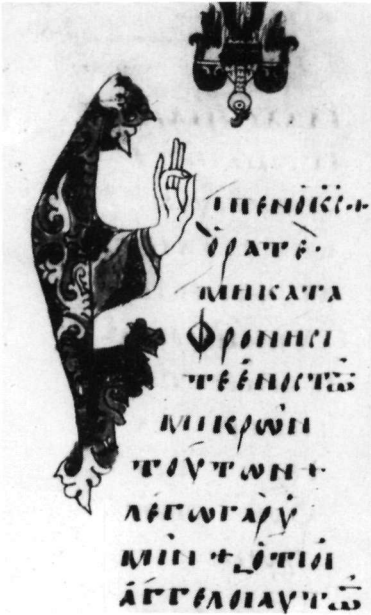 ΙΠΕΝὉΚ̅Ϲ̅·+
ὉΡΑΤΕ·
ΜΗΚΑΤΑ
ΦΡΟΝΗϹΙ
ΤΕἙΝΟϹΤΩ̅
ΜΙΚΡΩ͂Ν
ΤΟΎΤΩΝ+
ΛΈΓΩΓᾺΡὙ
ΜΙ͂Ν+ὍΤΙΟἹ
ἌΓΓΕΛΟΙΑΥΤΩ̅